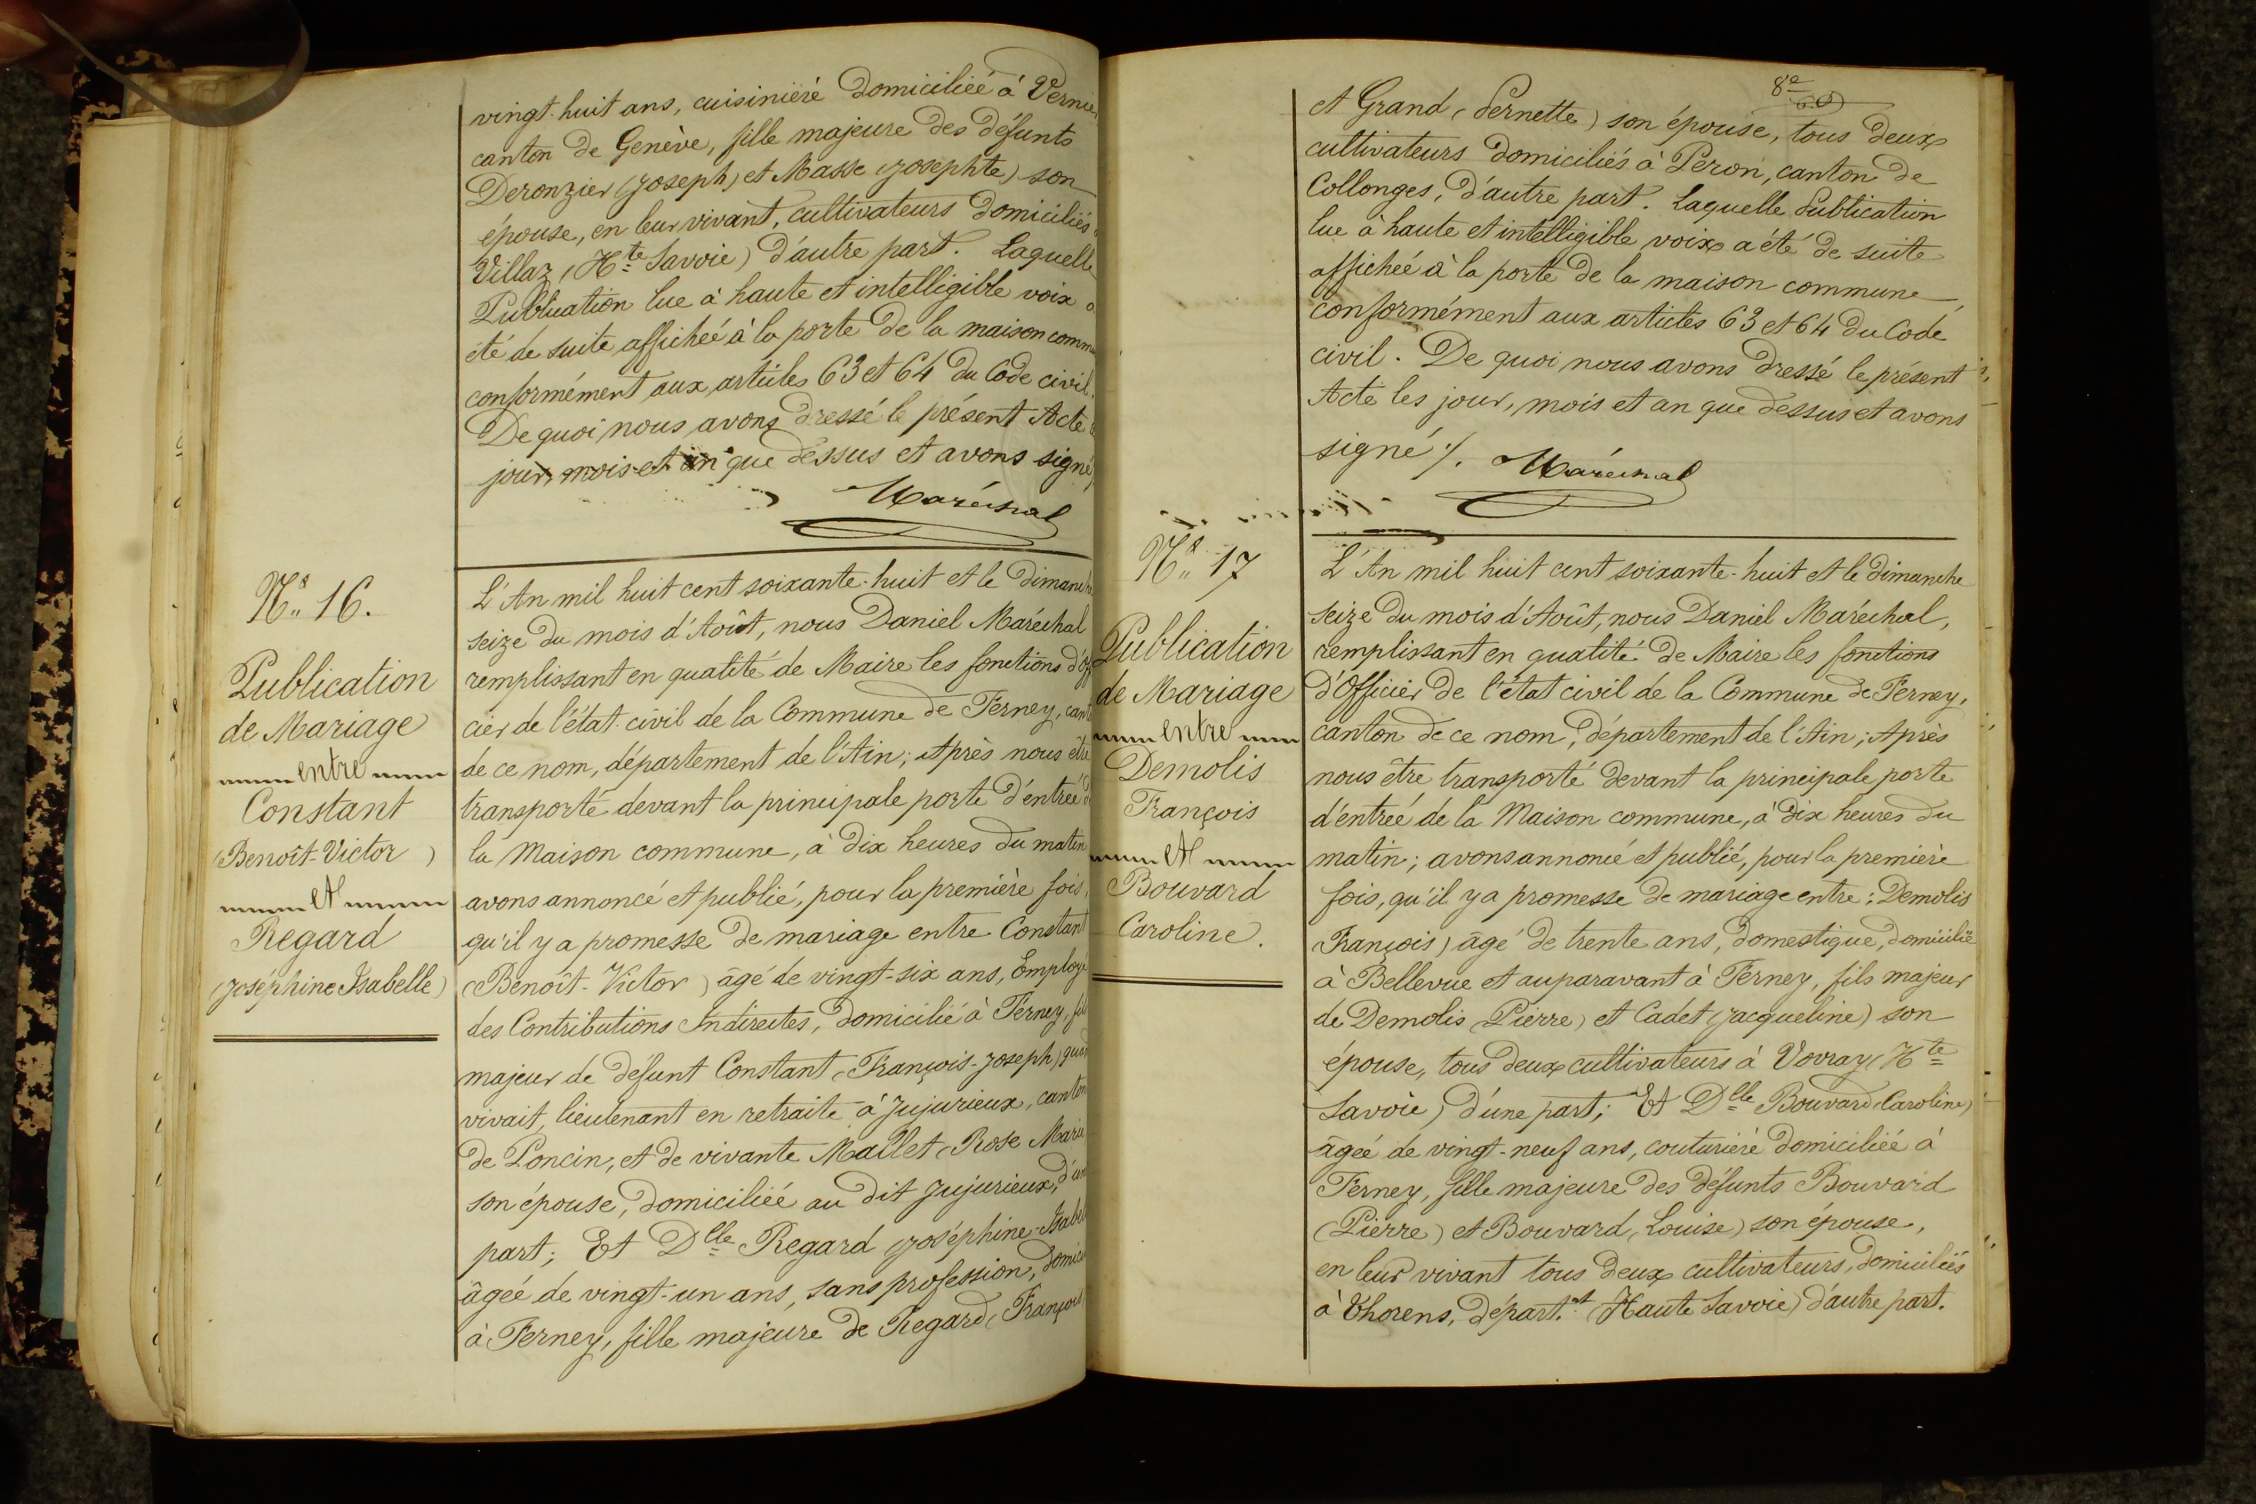 vingt-huit ans, cuisinière domiciliée à Vernier
canton de Genève, fille majeure des défunts
Deronzier (Joseph) et Masse (Josephte) son
épouse, en leur vivant, cultivateurs domiciliés
Villaz (Hte Savoie) d'autre part. Laquelle
Publication lue à haute et intelligible voix a
été de suite affichée à la porte de la maison comm
conformément aux articles 63 et 64 du Code civil.
De quoi nous avons dressé le présent Acte
jour, mois et an que dessus et avons signé
Maréchal
No. 16.
Publication
de Mariage
entre
Constant
(Benoît-Victor)
et
Regard
(Joséphine Isabelle)
L'An mil huit cent soixante-huit et le dimanche
seize du mois d'Août, nous Daniel Maréchal
remplissant en qualité de Maire les fonctions d'Offi
cier de l'état-civil de la Commune de Ferney, cant
de ce nom, département de l'Ain; Après nous être
transporté devant la principale porte d'entrée d
la Maison commune, à dix heures du matin
avons annoncé et publié, pour la première fois,
qu'il y a promesse de mariage entre Constant
(Benoît-Victor) âgé de vingt-six ans, Employé
des Contributions Indirectes, domicilié à Ferney, fils
majeur de défunt Constant (François-Joseph) quand
vivait, lieutenant en retraite à Jujurieux, canton
de Poncin, et de vivante Mallet (Rose Marie
son épouse, domiciliée au dit Jujurieux, d'un
part; Et Dlle Regard (Joséphine-Isabel
âgée de vingt-un ans, sans profession, domici
à Ferney, fille majeure de Regard (François
8e
et Grand (Pernette) son épouse, tous deux
cultivateurs domiciliés à Peron, canton de
Collonges, d'autre part. Laquelle Publication
lue à haute et intelligible voix a été de suite
affichée à la porte de la maison commune,
conformément aux articles 63 et 64 du Code
civil. De quoi nous avons dressé le présent
Acte les jour, mois et an que dessus et avons
signé ./.
Maréchal
No. 17
Publication
de Mariage
entre
Demolis
François
et
Bouvard
Caroline.
L'An mil huit cent soixante-huit et le dimanche
seize du mois d'Août, nous Daniel Maréchal,
remplissant en qualité de Maire les fonctions
d'Officier de l'état civil de la Commune de Ferney,
canton de ce nom, département de l'Ain; Après
nous être transporté devant la principale porte
d'entrée de la Maison commune, à dix heures du
matin; avons annoncé et publié, pour la première
fois, qu'il y a promesse de mariage entre: Demolis
(François) âgé de trente ans, domestique, domicilié
à Bellevue et auparavant à Ferney, fils majeur
de Demolis (Pierre) et Cadet (Jacqueline) son
épouse, tous deux cultivateurs à Vovray (Hte
Savoie) d'une part; Et Dlle Bouvard (Caroline)
âgée de vingt-neuf ans, couturière domiciliée à
Ferney, fille majeure des défunts Bouvard
(Pierre) et Bouvard (Louise) son épouse,
en leur vivant tous deux cultivateurs, domiciliés
à Thorens, départ.nt (Haute Savoie) d'autre part.